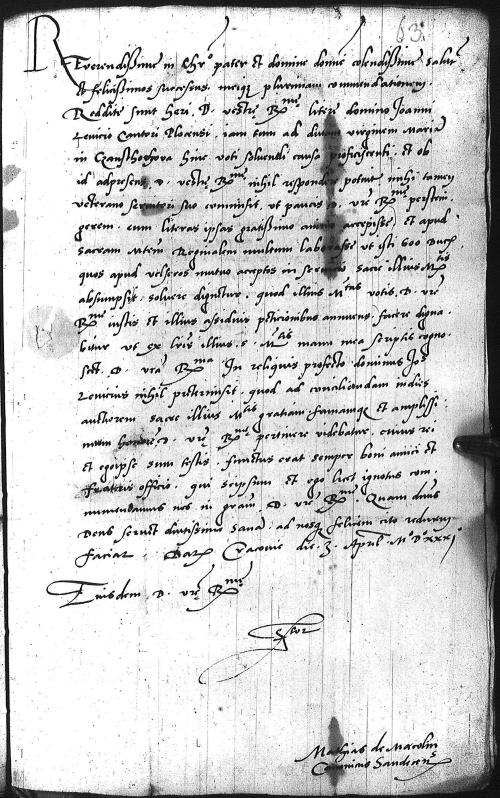 63
Reverendissime in Chro pater et domine domine colendissime salutem
et felicissimos successus, meique plurimam commendationem.
Reddite sunt heri D. vestre Rme litere domino Joanni
Lenicio Cantori Plocensi, iam tum ad divam virginem Mariam
in Czansthochova hinc voti solvendi causa proficiscenti, et ob
id ad presens D. vestre Rme nihil respondere potuit mihi tamen
veterano servitori suo commisit, ut paucis D. vre Rme perstringerem
gerem. cum literas ipsas gratissimo animo accepisse, et apud
sacram Mtem Reginalem multum laborasse ut isti 600 Ducati
quos apud velseros mutuo acceptos in servitio sacre illius Mtis
absumpsit, solvere dignetur, quod illius Mtas votis D. vre
Rme iustis et illius assiduis petitionibus annuens, facere digna
bitur, ut ex lris illius s. Mtis manu mea scriptis cogno
scet. D. vra Rma. In reliquis profecto dominus Jos
Lenicius nihil pretermisit, quod ad conciliandam
auctorem sacre illius Mtis gratiam famamque et amplissi
mum honorem D. vre Rme pertinere videbatur, cuius rei
et egoipse sum testis, functus erat semper boni amici et
fratris officio, qui seipsum et ego licet ignotus com
mendamus nos in gram D. vre Rme. Quam deus
Deus servet diutissime sanam, ad nosque felicem cito reditum
faciat. Datum Cracovie die 3 Aprilis M D XXXI
Eiusdem D. vre Rme
Mathias de
Canonicus Sandecensis